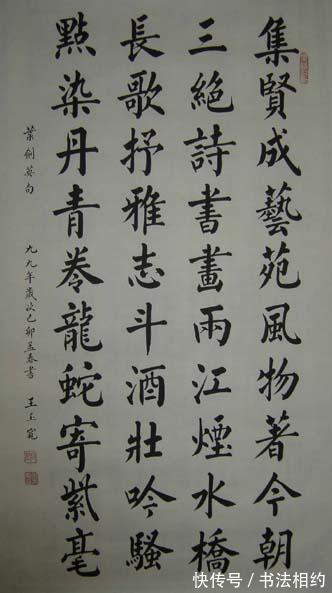 集賢成藝苑風物著今朝
三絕詩書畫兩江煙水橋
長歌抒雅志斗酒壯吟騷
點染丹青卷龍蛇寄紫毫
葉劍英句
九九年歲次己卯孟春書
王玉寬
快传号／书法相约